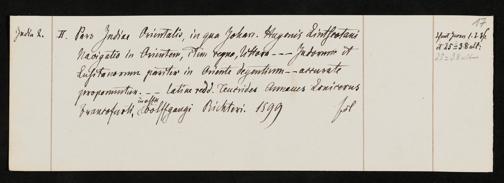 17
India 2.
II. Pars Indiae Orientalis, in qua Johan. Hugonis Lintscotani
Navigatio in Orientem, item regna, littora --- Indorum et
Lusitanorum pariter in Oriente degentium -- accurate
proponuntur. -- Latine redd. Teucrides Annaeus Lonicerus
Francofurti, in offic. Wolffgangi Richteri. 1599
fol